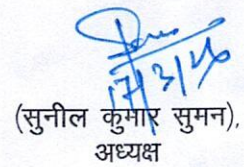 17/3/26
(सुनील कुमार सुमन),
अध्यक्ष